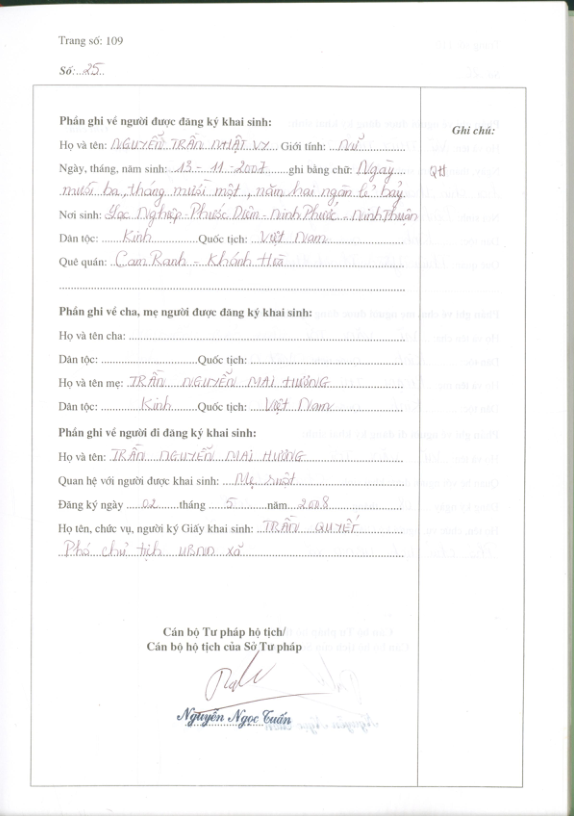 Trang số: 109
Số:..25..
Phần ghi về người được đăng ký khai sinh:
Ghi chú:
Họ và tên: NGUYỄN TRẦN NHẬT VY Giới tính: Nữ
Ngày, tháng, năm sinh: 13 - 11 - 2007 ghi bằng chữ: Ngày
QH
mười ba, tháng mười một, năm hai ngàn lẻ bảy
Nơi sinh: Lạc Nghiệp - Phước Diêm - Ninh Phước - Ninh Thuận
Dân tộc: Kinh Quốc tịch: Việt Nam
Quê quán: Cam Ranh - Khánh Hoà
Phần ghi về cha, mẹ người được đăng ký khai sinh:
Họ và tên cha:
Dân tộc: Quốc tịch:
Họ và tên mẹ: TRẦN NGUYỄN MAI HƯƠNG
Dân tộc: Kinh Quốc tịch: Việt Nam
Phần ghi về người đi đăng ký khai sinh:
Họ và tên: TRẦN NGUYỄN MAI HƯƠNG
Quan hệ với người được khai sinh: Mẹ ruột
Đăng ký ngày 02 tháng 5 năm 2008
Họ tên, chức vụ, người ký Giấy khai sinh: TRẦN QUYẾT
Phó chủ tịch UBND xã
Cán bộ Tư pháp hộ tịch/
Cán bộ hộ tịch của Sở Tư pháp
Nguyễn Ngọc Tuấn